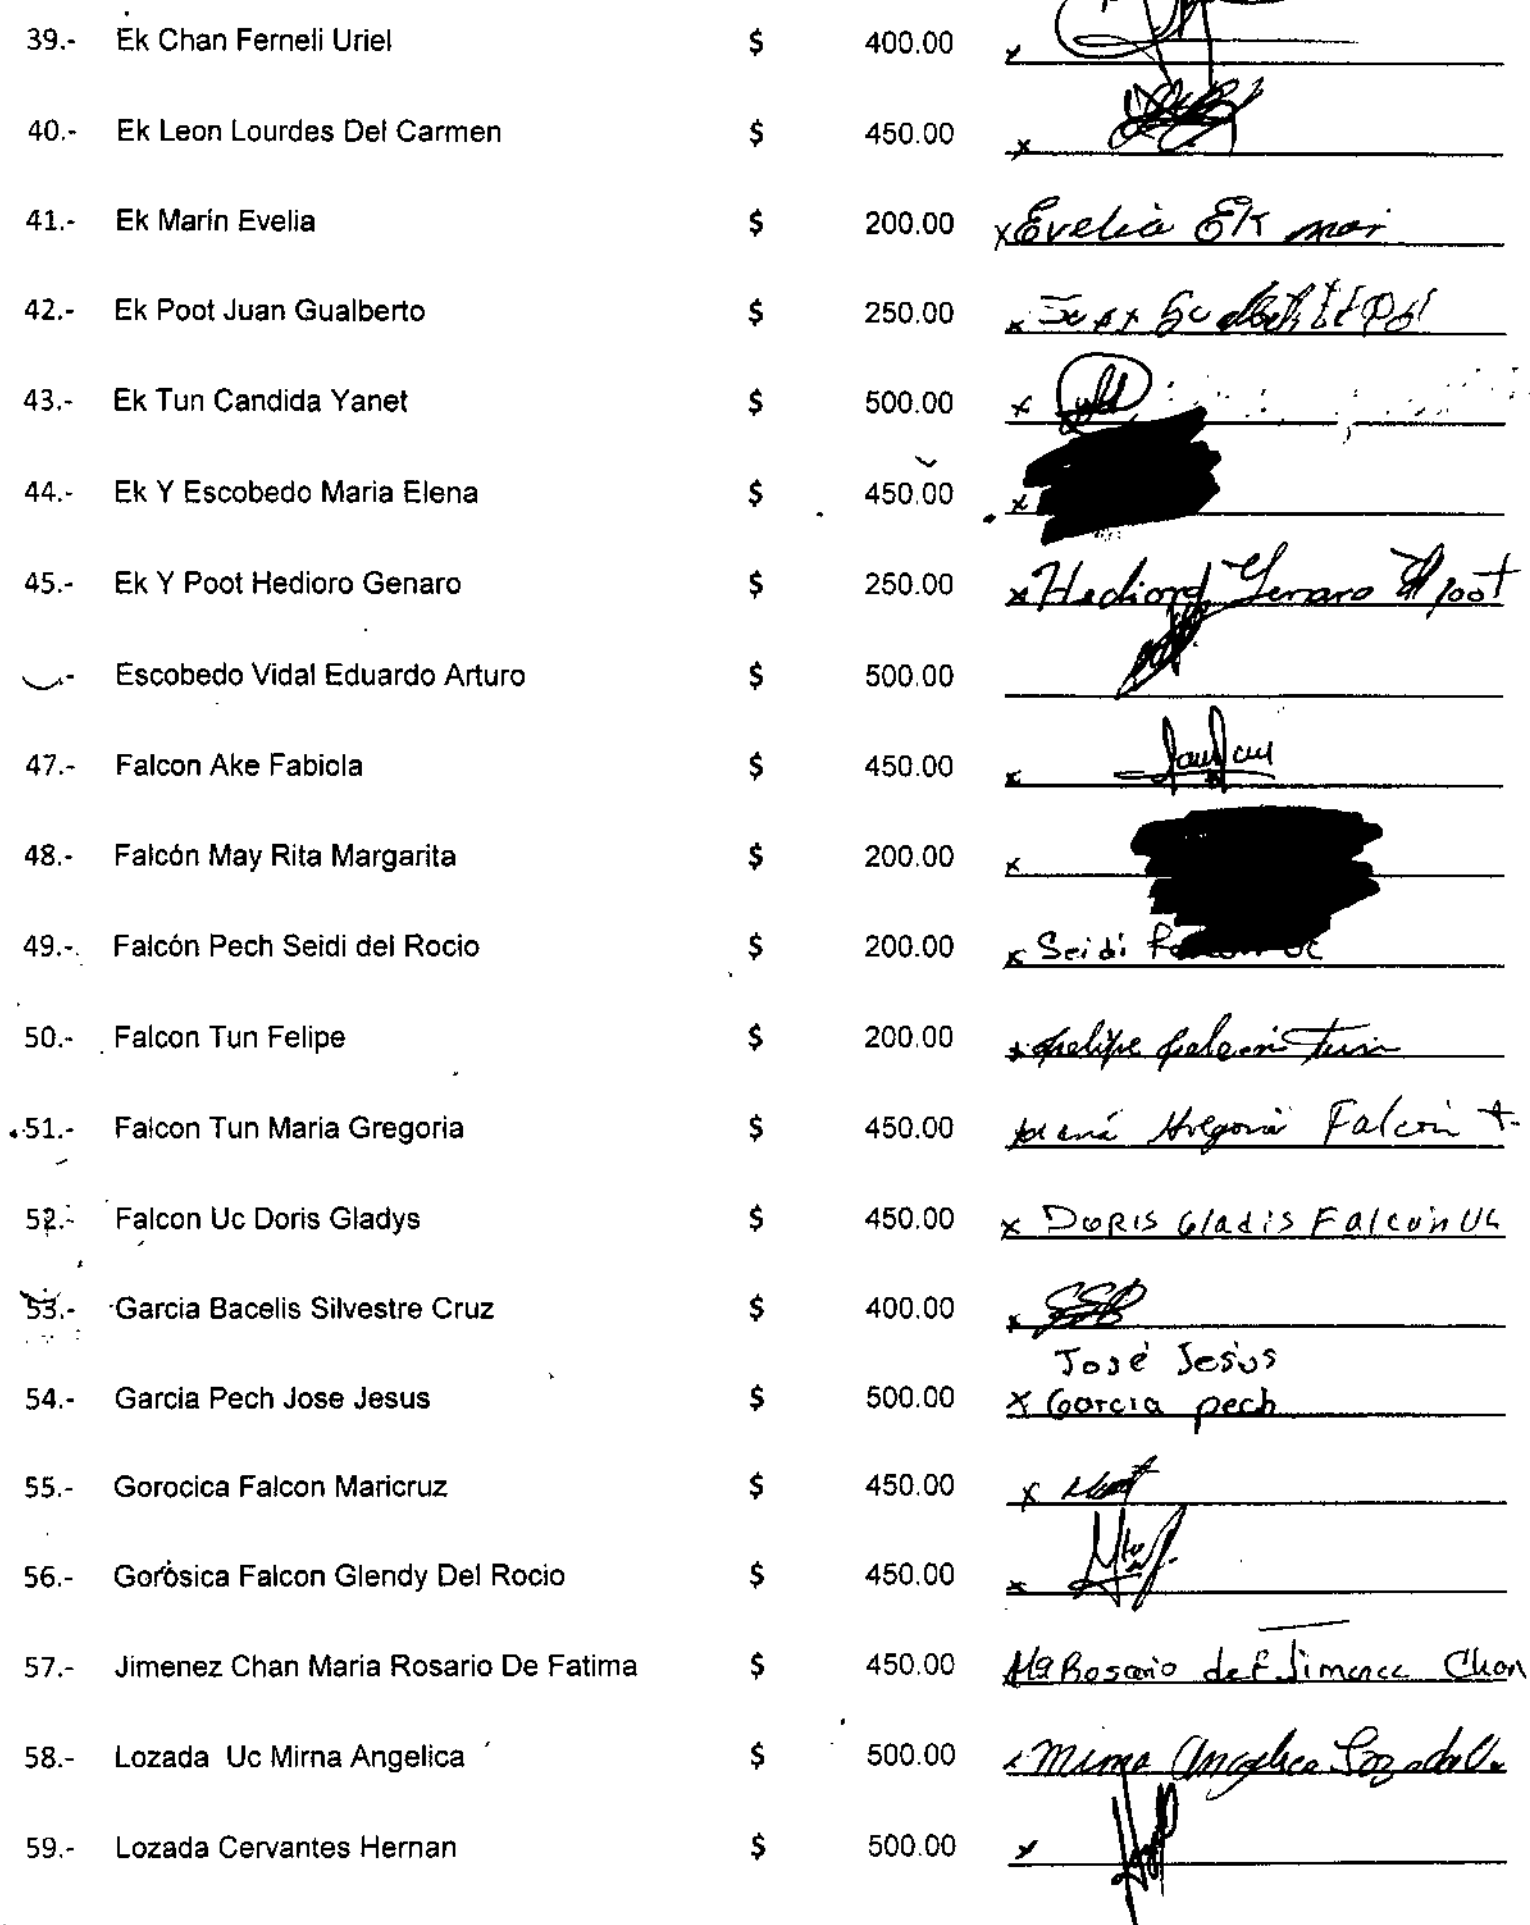 39.- Ek Chan Ferneli Uriel $ 400.00 x
40.- Ek Leon Lourdes Del Carmen $ 450.00 x
41.- Ek Marín Evelia $ 200.00 x Evelia Ek mar
42.- Ek Poot Juan Gualberto $ 250.00 x
43.- Ek Tun Candida Yanet $ 500.00 x
44.- Ek Y Escobedo Maria Elena $ 450.00 x
45.- Ek Y Poot Hedioro Genaro $ 250.00 x Hedioro Genaro Ek poot
.- Escobedo Vidal Eduardo Arturo $ 500.00
47.- Falcon Ake Fabiola $ 450.00 x
48.- Falcón May Rita Margarita $ 200.00 x
49.- Falcón Pech Seidi del Rocio $ 200.00 x Seidi
50.- Falcon Tun Felipe $ 200.00 x felipe falcon Tun
51.- Falcon Tun Maria Gregoria $ 450.00 Falcon t.
52.- Falcon Uc Doris Gladys $ 450.00 x DORIS Gladis Falcon Uc
53.- Garcia Bacelis Silvestre Cruz $ 400.00 x
José Jesús
54.- Garcia Pech Jose Jesus $ 500.00 x Garcia pech
55.- Gorocica Falcon Maricruz $ 450.00 x
56.- Gorósica Falcon Glendy Del Rocio $ 450.00 x
57.- Jimenez Chan Maria Rosario De Fatima $ 450.00 Ma Rosario de F Jimenez Chan
58.- Lozada Uc Mirna Angelica $ 500.00 x Mirna Angelica Lozada U.
59.- Lozada Cervantes Hernan $ 500.00 x